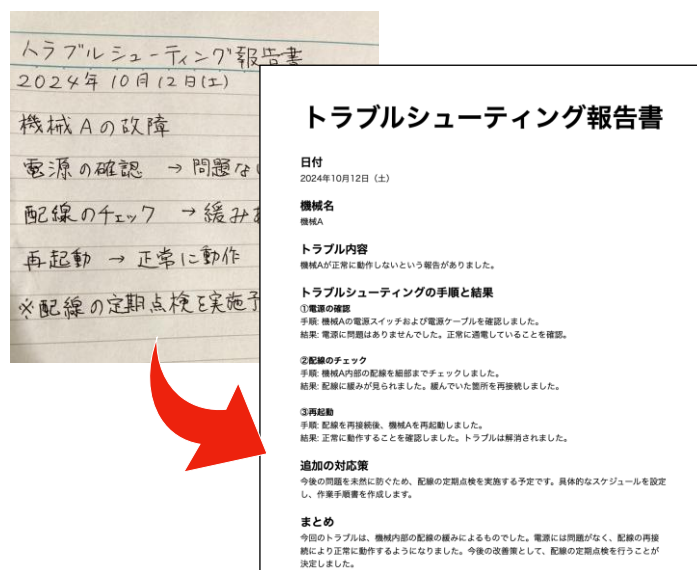 トラブルシューティング報告書
2024年10月12日(土)
機械Aの故障
電源の確認 → 問題な
配線のチェック → 緩み
再起動 → 正常に動作
※配線の定期点検を実施予
トラブルシューティング報告書
日付
2024年10月12日（土）
機械名
機械A
トラブル内容
機械Aが正常に動作しないという報告がありました。
トラブルシューティングの手順と結果
①電源の確認
手順: 機械Aの電源スイッチおよび電源ケーブルを確認しました。
結果: 電源に問題はありませんでした。正常に通電していることを確認。
②配線のチェック
手順: 機械A内部の配線を細部までチェックしました。
結果: 配線に緩みが見られました。緩んでいた箇所を再接続しました。
③再起動
手順: 配線を再接続後、機械Aを再起動しました。
結果: 正常に動作することを確認しました。トラブルは解消されました。
追加の対応策
今後の問題を未然に防ぐため、配線の定期点検を実施する予定です。具体的なスケジュールを設定
し、作業手順書を作成します。
まとめ
今回のトラブルは、機械内部の配線の緩みによるものでした。電源には問題がなく、配線の再接
続により正常に動作するようになりました。今後の改善策として、配線の定期点検を行うことが
決定しました。